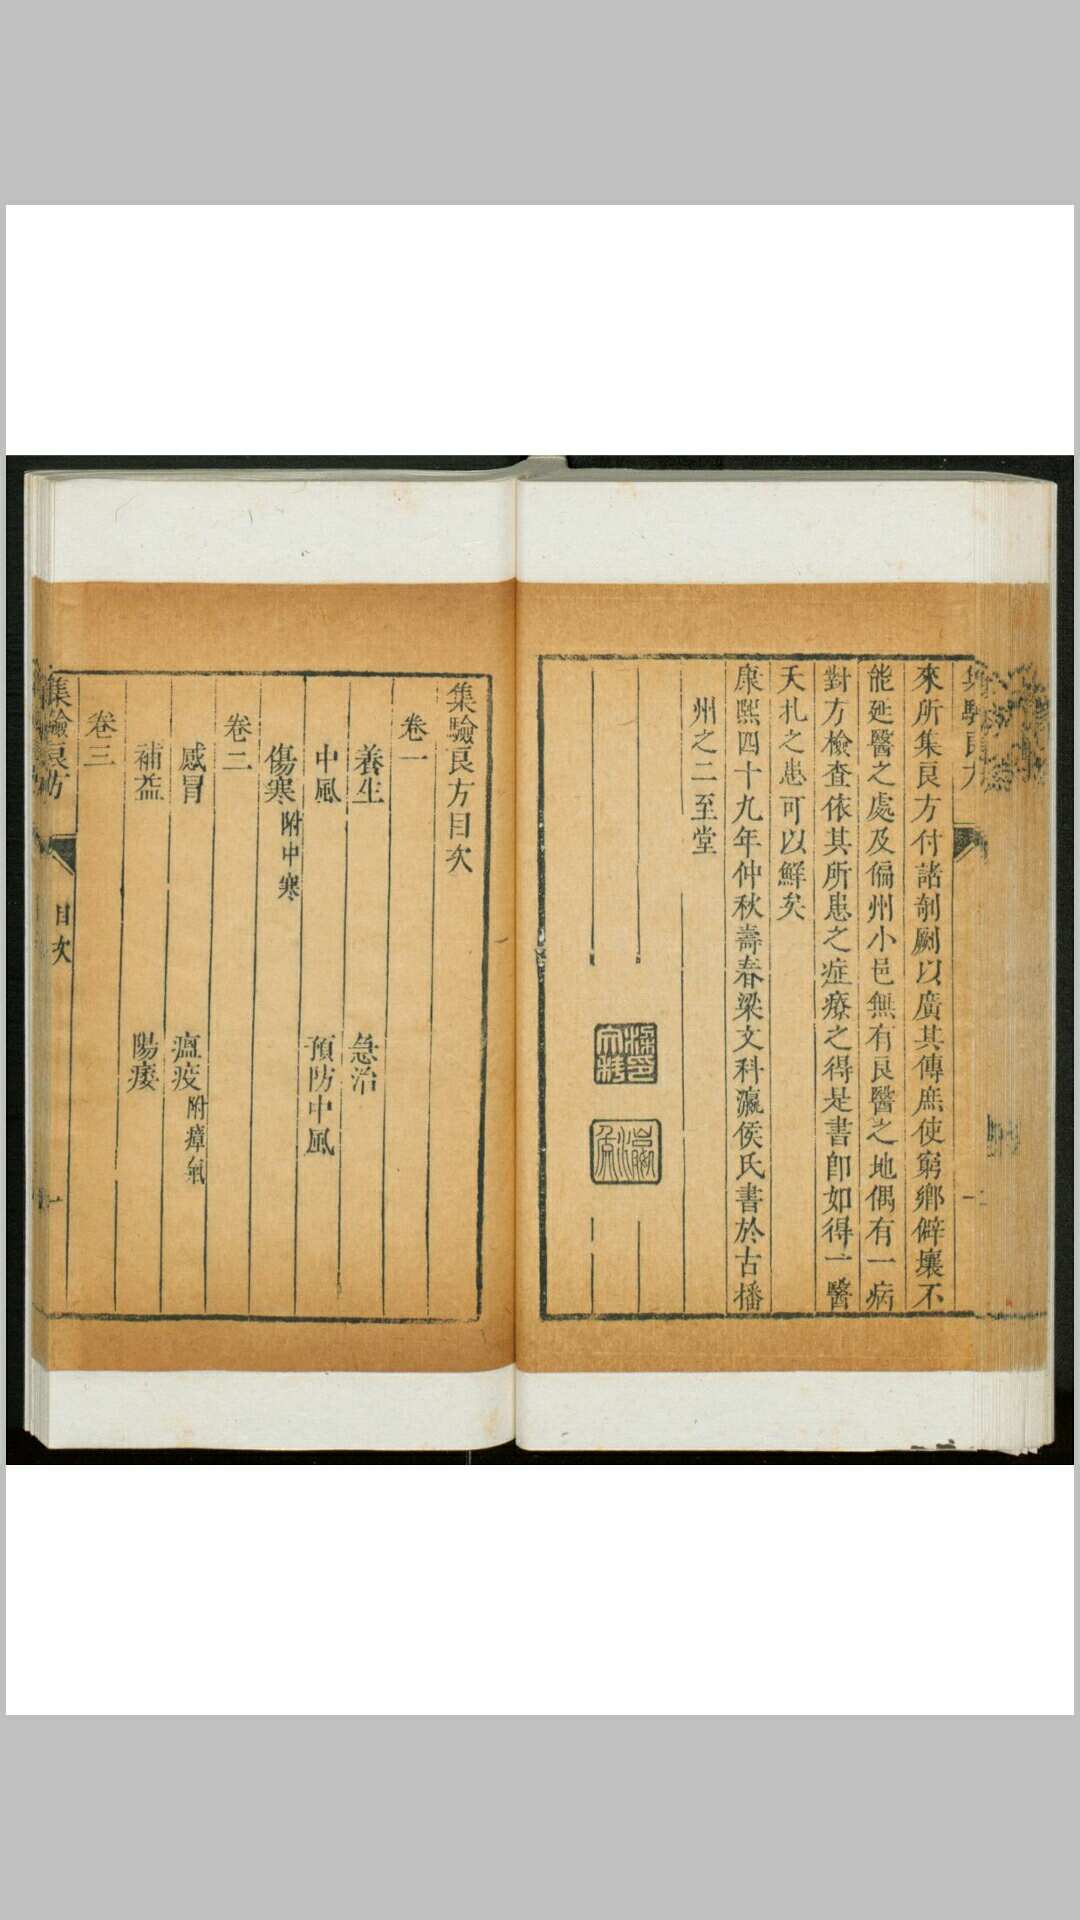 來所集良方付諸剞劂以廣其傳庶使窮鄉僻壤不
能延醫之處及偏州小邑無有良醫之地偶有一病
對方檢查依其所患之症療之得是書卽如得一醫
天札之患可以鮮矣
康熙四十九年仲秋壽春梁文科瀛侯氏書於古播
州之二至堂
梁文科印
瀛侯
集驗良方目次
卷一
養生 急治
中風 預防中風
傷寒附中寒
卷二
感冒 瘟疫附瘴氣
補益 陽痿
卷三
集驗良方 目次 一